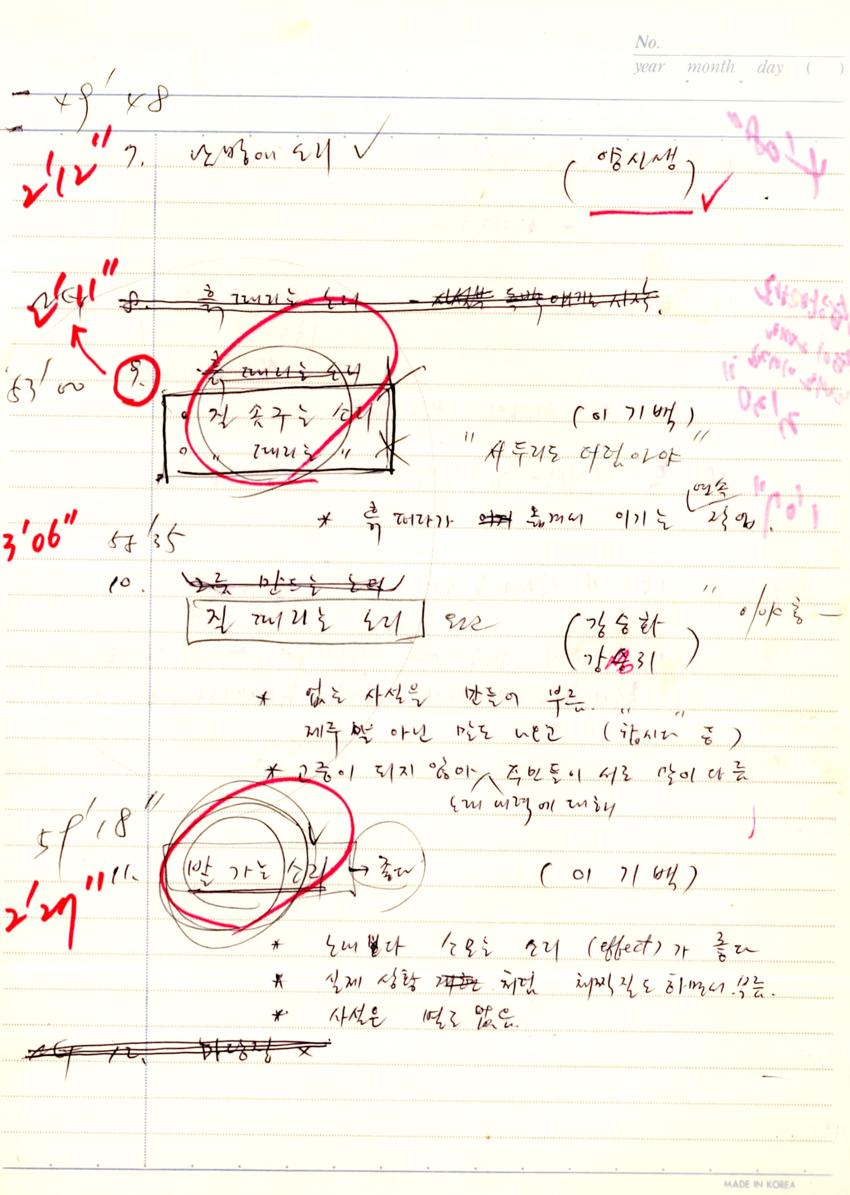 No.
year month day ( )
49' 48
2'12" 7. 소리 ✓ (양신생) ✓
8. 흙 때리는 소리 -
9. 흙 때리는 소리
53' 00
○ 질 솜구는 소리 (이기백)
○ " 때리는 " "서두리도 더럼아야"
* 흙 떠다가 옮겨서 이기는 연속 작업.
3'06" 58' 35
10. 만드는
질 때리는 소리 (강승화
강 리)
* 없는 사설을 만들어 부름.
제주 말 아닌 말도 나오고 ("합시다" 등)
* 고증이 되지 않아 주민들이 서로 말이 다름
노래 내력에 대해
59' 18"
2'27" 11. 밭 가는 소리 → 좋다 (이기백)
* 노래보다 소모는 소리 (effect)가 좋다
* 실제 상황 처럼 채찍질도 하면서 부름.
* 사설은 별로 없음.
12.
MADE IN KOREA